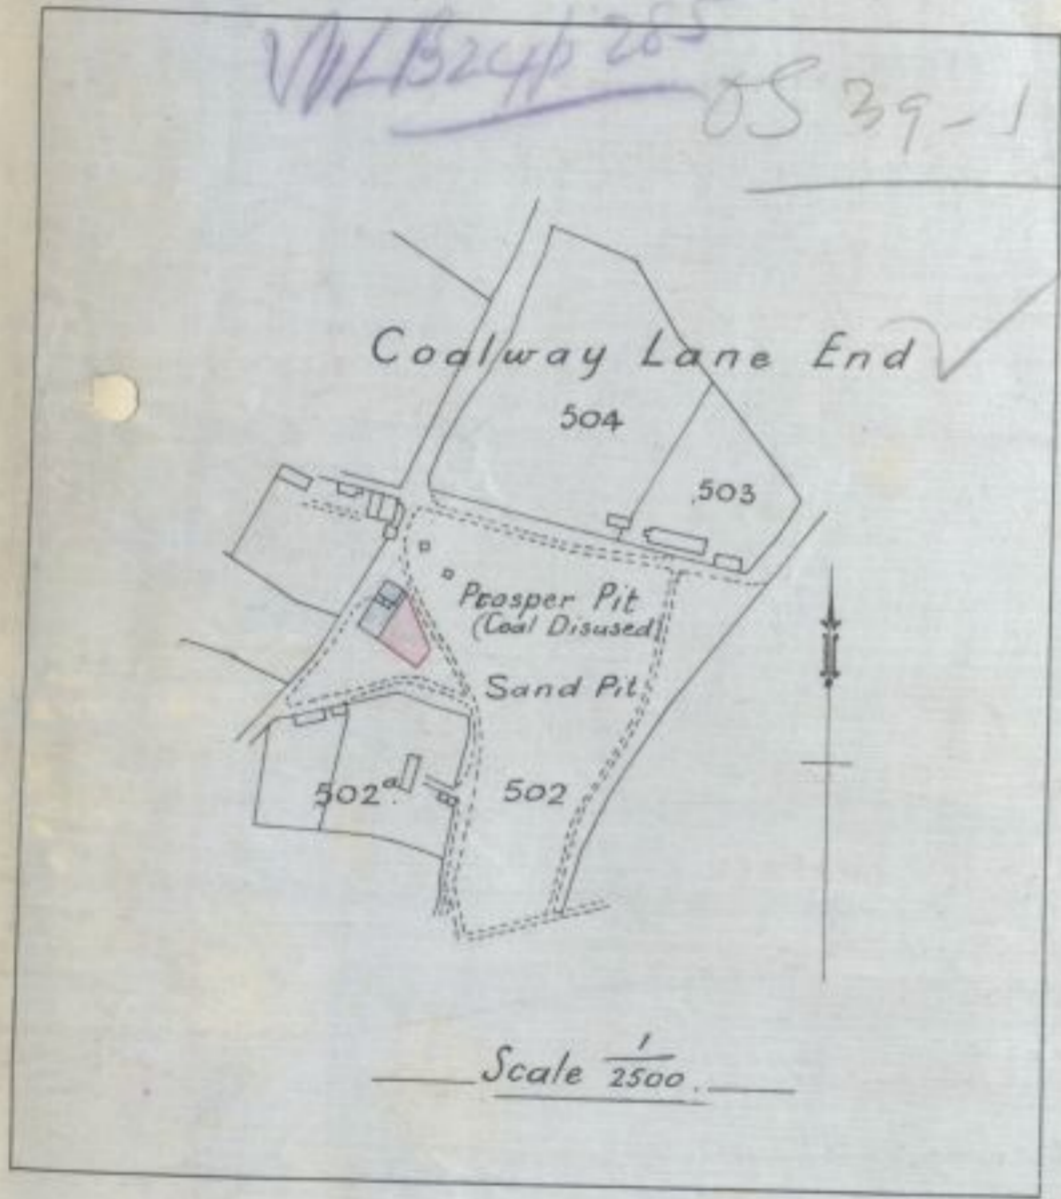 OS 39-1
Coalway Lane End
504
503
Prosper Pit
(Coal Disused)
Sand Pit
502a.
502
Scale 1/2500.